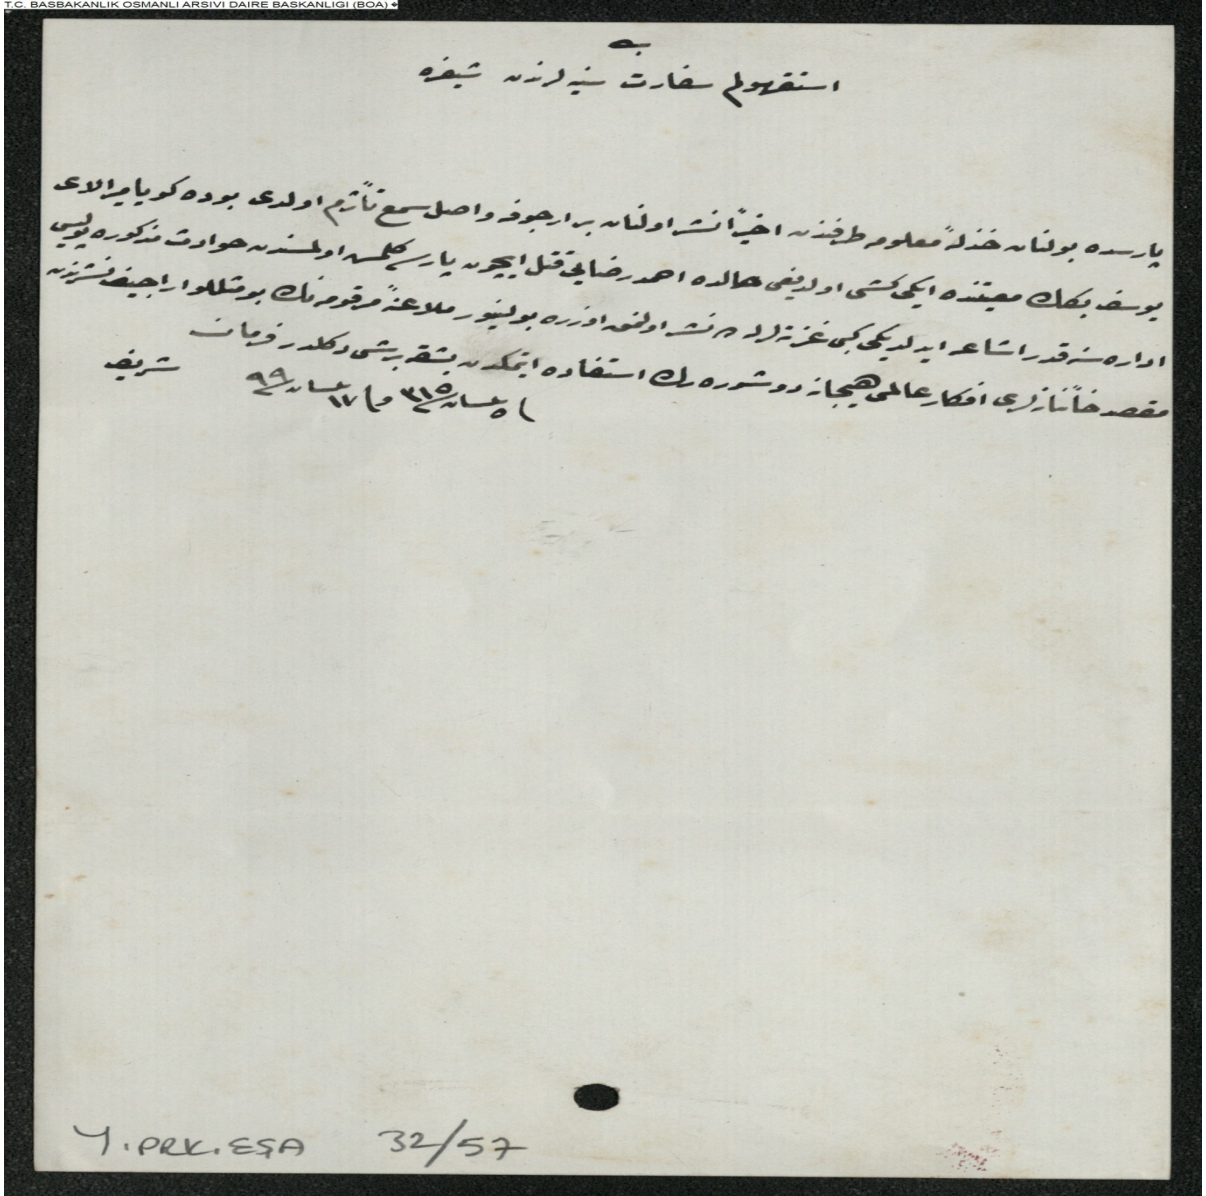 T.C. BASBAKANLIK OSMANLI ARSIVI DAIRE BASKANLIGI (BOA)
استقهولم سفارت سنيه لرندن شيفره
پارسده بولنان خذلهٔ معلومه طرفندن اخيراً نشر اولنان بر ارجوفه واصل سمع تأثرم اولدى بوده كويا ميرالاى
يوسف بكك معيتنده ايكى كشى اولديغى حالده احمد رضايى قتل ايچون پارسه كلمسى اولمسندن حوادث مذكوره پوليس
اداره سنه قدر اشاعه ايدلديكى كبى غزته لرله ده نشر اولنمق اوزره بولنيور ملاعنهٔ مرقومه نك بو مثللو اراجيف نشرندن
مقصد خائنانه لرى افكار عالمى هيجانه دوشوره رك استفاده ايتمكدن بشقه برشى دكلدر فرمان
فى ٥ نيسان ٣١٥ و فى ١٧ نيسان ٩٩ شريف
Y.PRK.EŞA 32/57